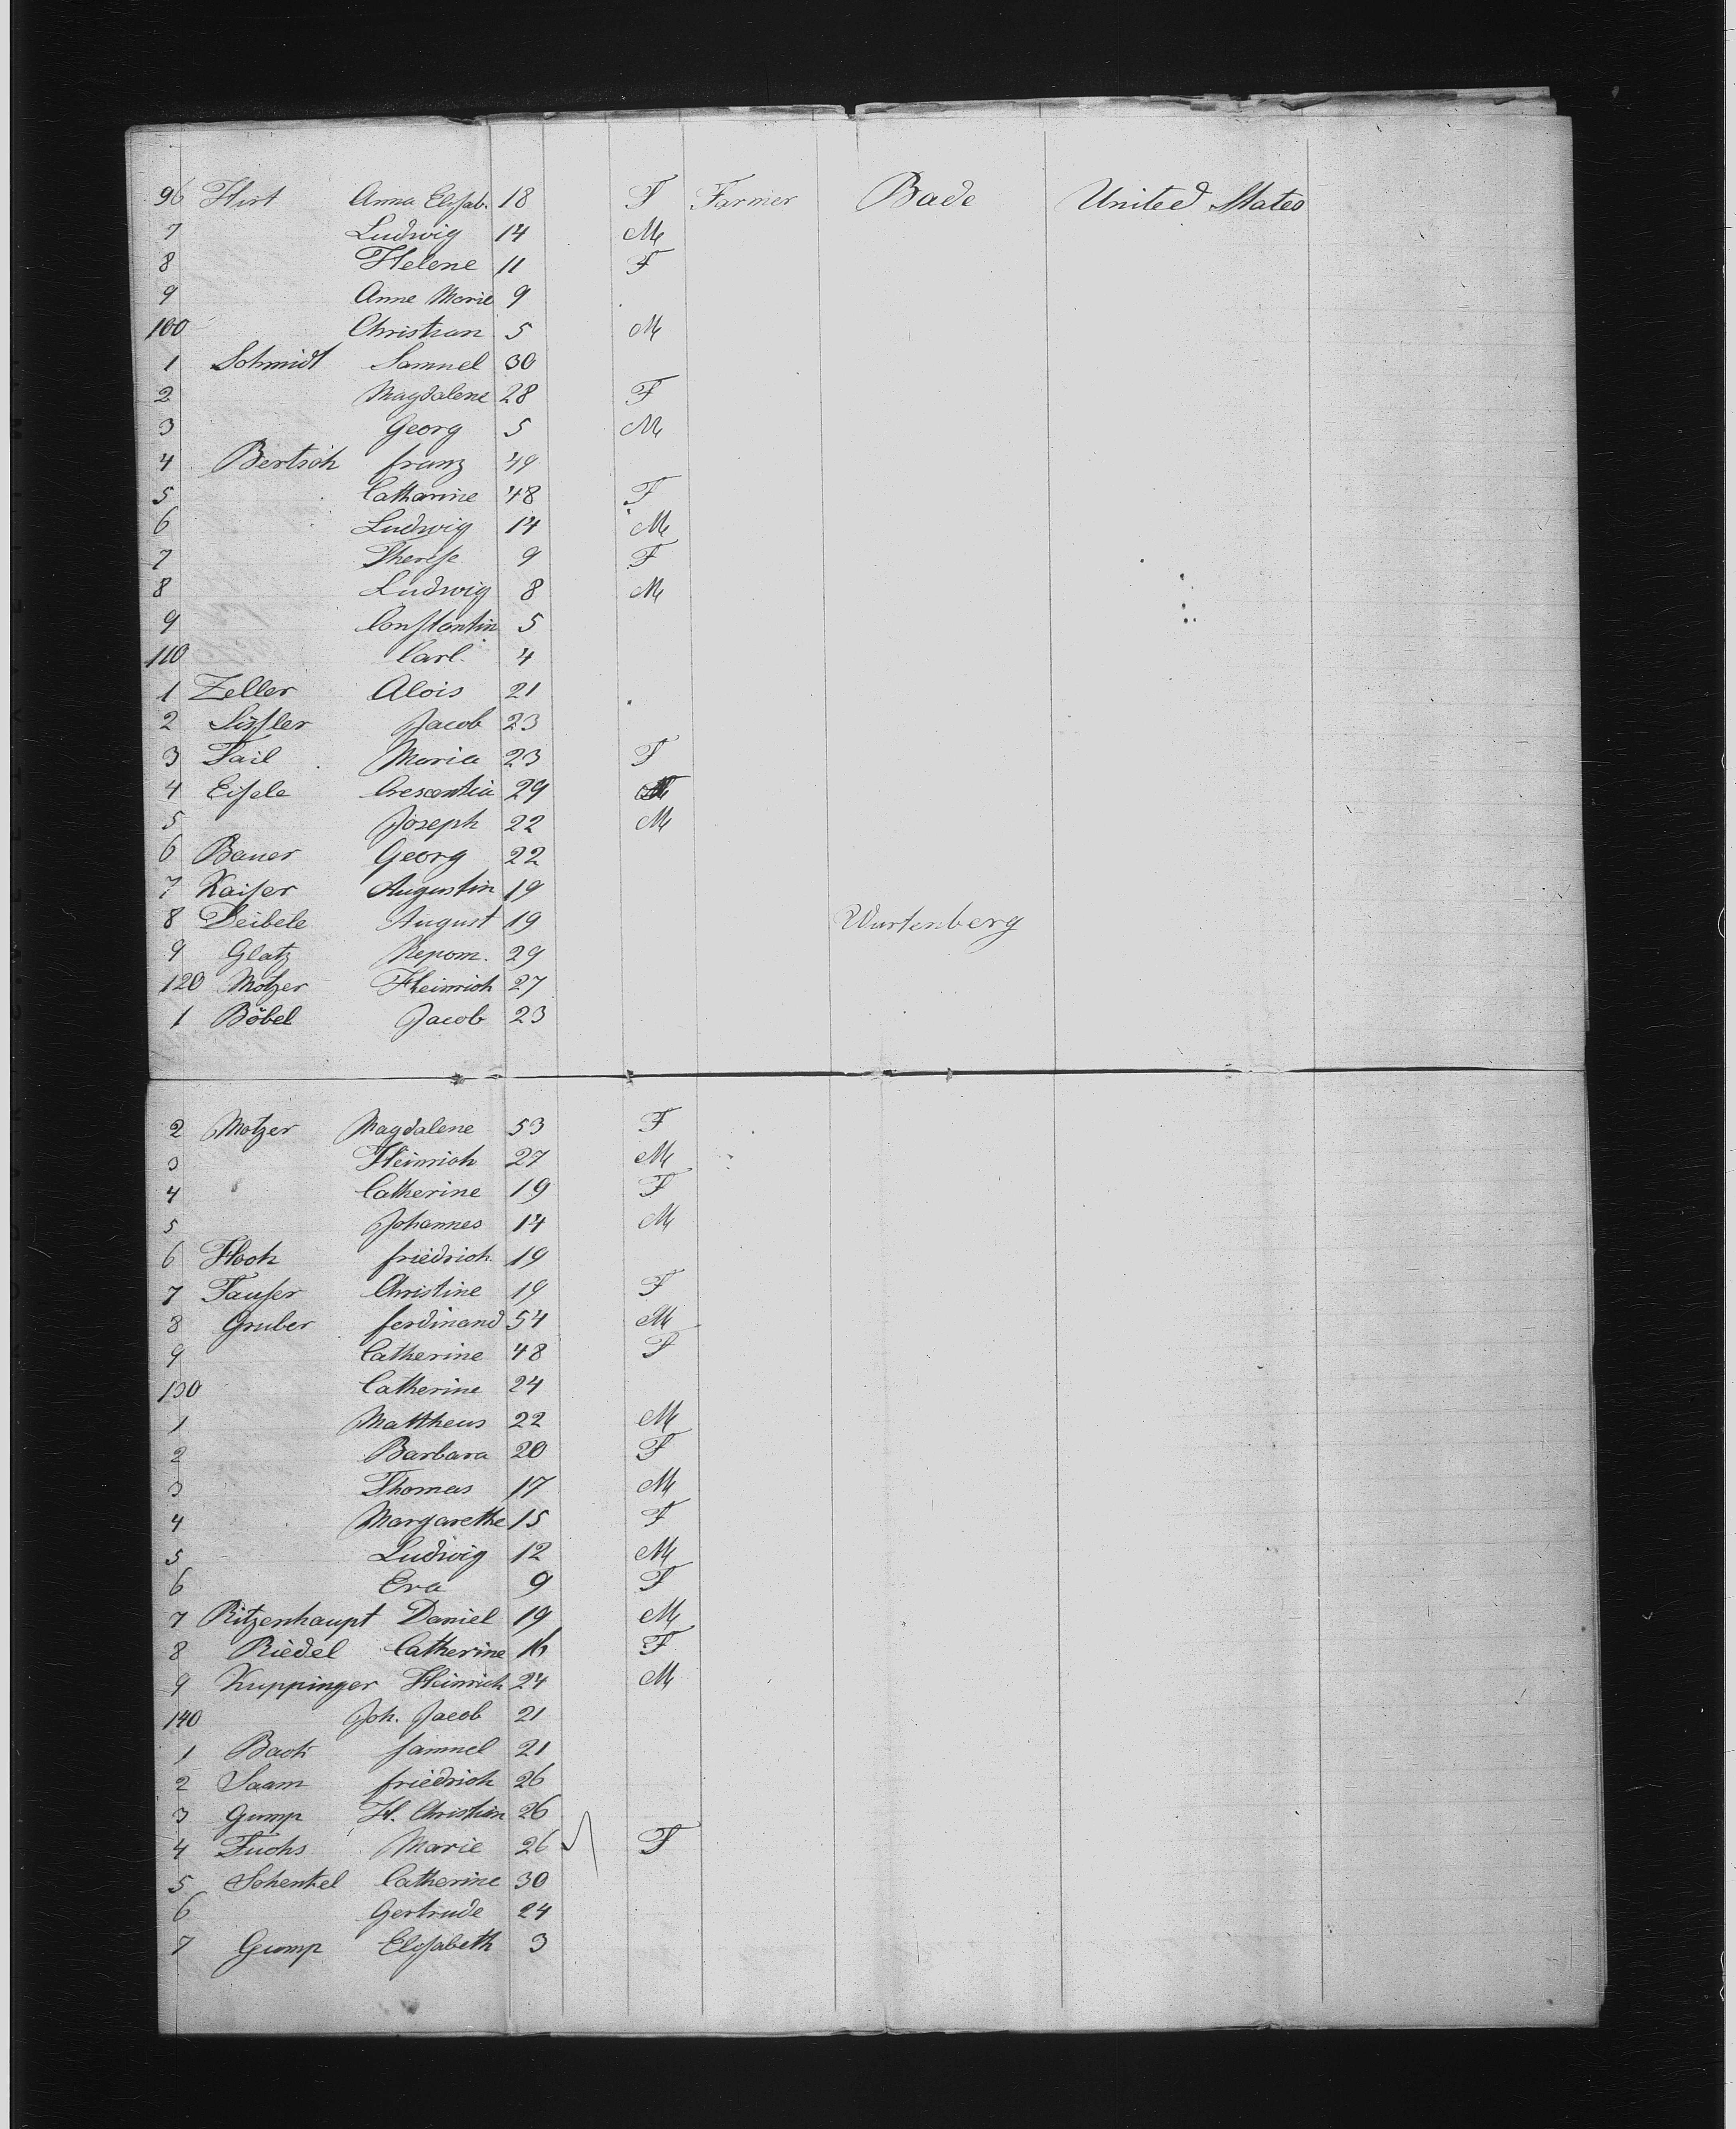 96 Hirt Anna Elisab. 18 F Farmer Bade United States
7 Ludwig 14 M
8 Helene 11 F
9 Anne Marie 9
100 Christian 5 M
1 Schmidt Samuel 30
2 Magdalene 28 F
3 Georg 5 M
4 Bertsch franz 49
5 Catharine 48 F
6 Ludwig 14 M
7 Therese 9 F
8 Ludwig 8 M
9 Constantin 5
110 Carl 4
1 Zeller Alois 21
2 Jacob 23
3 Maria 23 F
4 Eisele Crescentia 29
5 Joseph 22 M
6 Bauer Georg 22
7 Kaiser Augustin 19
8 Deibele August 19 Wurtenberg
9 Glatz Nepom. 29
120 Motzer Heinrich 27
1 Böbel Jacob 23
2 Motzer Magdalene 53 F
3 Heinrich 27 M
4 Catherine 19 F
5 Johannes 14 M
6 Hoch friedrich 19
7 Tauser Christine 19 F
8 Gruber ferdinand 54 M
9 Catherine 48 F
130 Catherine 24
1 Mattheus 22 M
2 Barbara 20 F
3 Thomas 17 M
4 Margarethe 15 F
5 Ludwig 12 M
6 Eva 9 F
7 Ritzenhaupt Daniel 19 M
8 Riedel Catherine 16 F
9 Kuppinger Heinrich 24 M
140 Joh. Jacob 21
1 Bach samuel 21
2 Saam friedrich 26
3 Gump H. Christian 26
4 Fuchs Marie 26 F
5 Schenkel Catherine 30
6 Gertrude 24
7 Gump Elisabeth 3